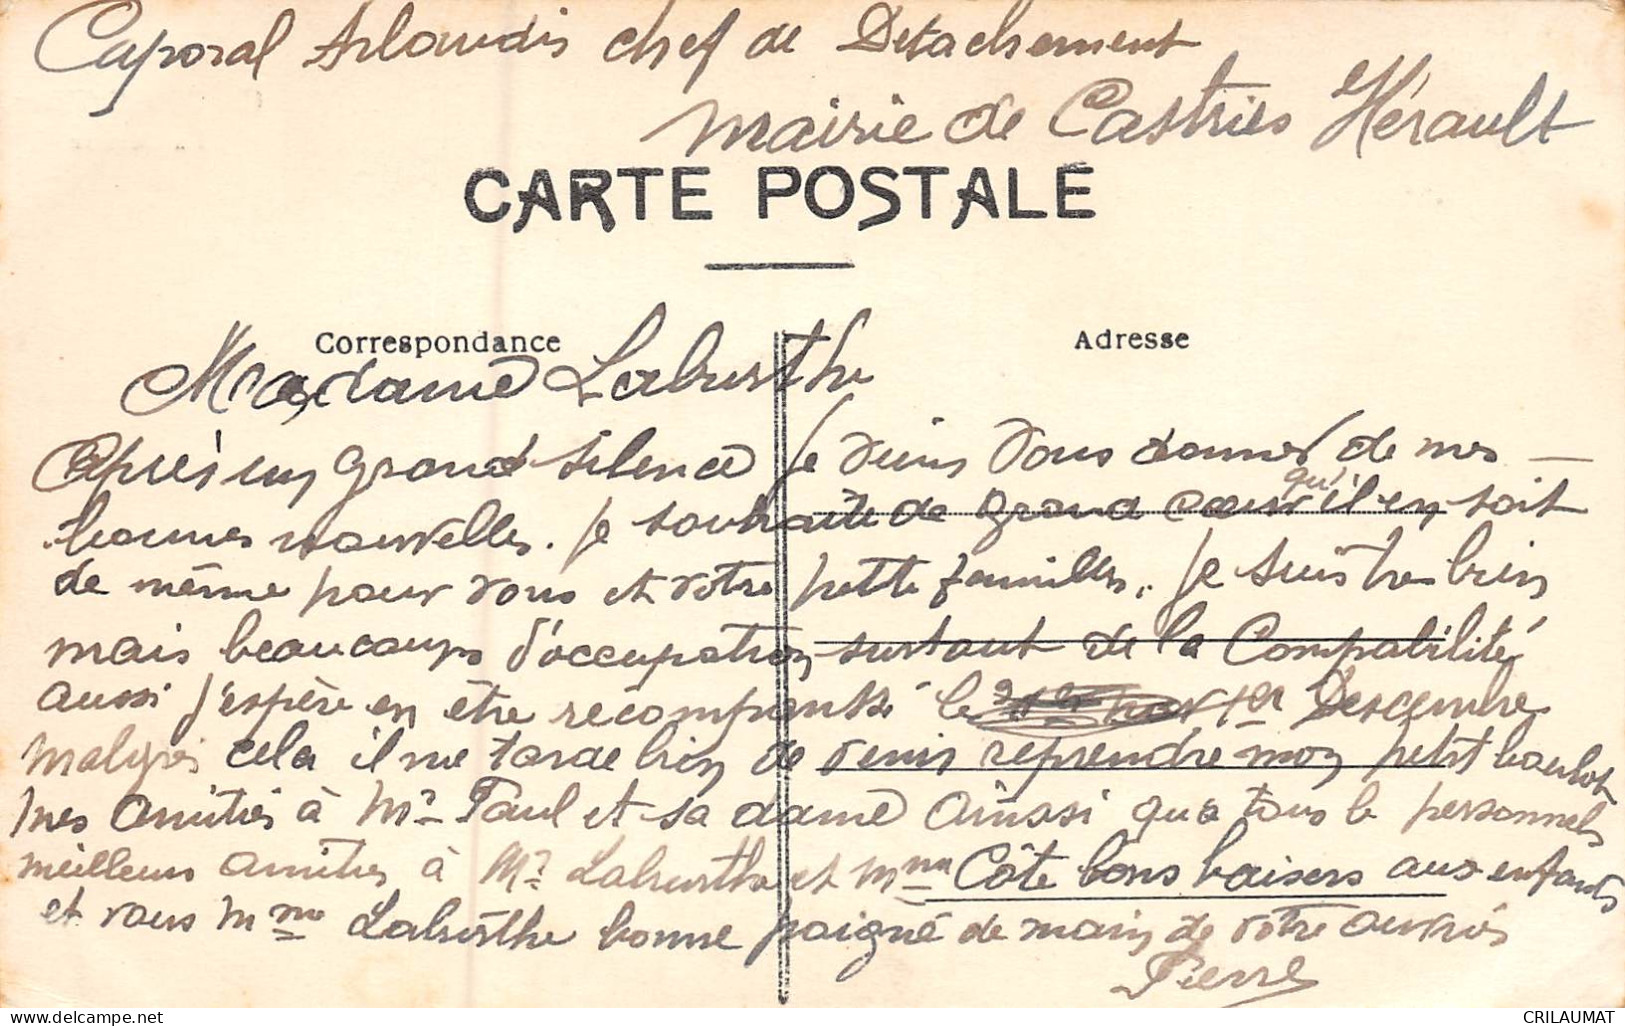 Caporal Arlaudis chef de Détachement
Mairie de Castries Hérault
CARTE POSTALE
Correspondance
Adresse
Madame Laburthe
Après un grand silence je viens vous donner de mes
bonnes nouvelles. je souhaite de grand cœur qu'il en soit
de même pour vous et votre petite familles. je suis très bien
mais beaucoups d'occupation surtout de la Compabilité
aussi j'espère en être récompensé le 1er Descembre
Malgrés cela il me tarde bien de venir reprendre mon petit boulot
Mes amitiés à Mr Paul et sa dame ainssi que tous le personnels
meilleurs amitiés à Mr Laburthe et Mme Côte bons baisers aux enfants
et vous Mme Laburthe bonne poigné de main de votre ouvriés
Pierre
CRILAUMAT